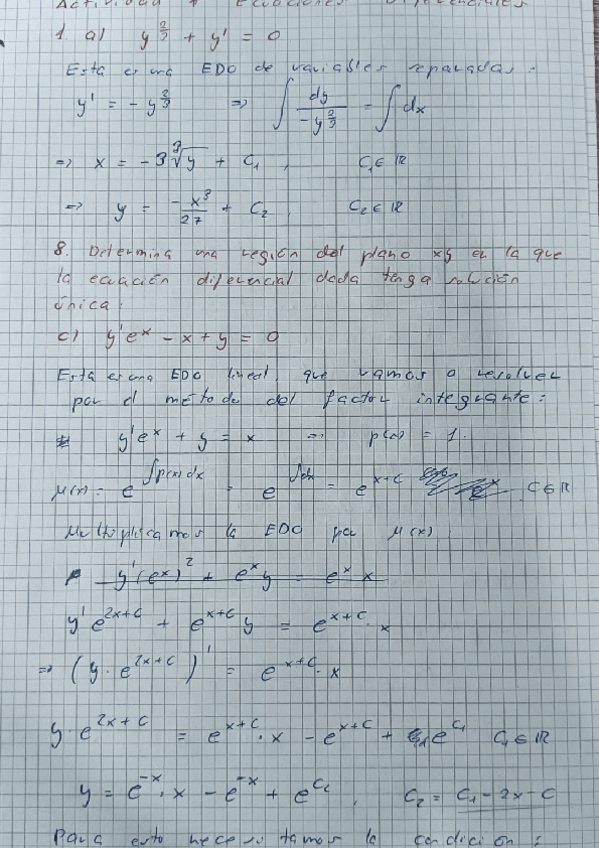 Actividad Ecuaciones Diferenciales
1. a) y^{2/3} + y' = 0
Esta es una EDO de variables separadas:
y' = - y^{2/3} => ∫ dy / -y^{2/3} = ∫ dx
=> x = -3 ∛y + C₁, C₁ ∈ ℝ
=> y = -x³/27 + C₂, C₂ ∈ ℝ
8. Determina una región del plano xy en la que
la ecuación diferencial dada tenga solución
única:
c) y'e^x - x + y = 0
Esta es una EDO lineal, que vamos a resolver
por el método del factor integrante:
y'e^x + y = x => p(x) = 1.
μ(x) = e^{∫p(x)dx} = e^{∫dx} = e^{x+c} C ∈ ℝ
Multiplicamos la EDO por μ(x)
y'(e^x)² + e^x y = e^x x
y' e^{2x+c} + e^{x+c} y = e^{x+c} · x
=> (y · e^{2x+c})' = e^{x+c} · x
y · e^{2x+c} = e^{x+c} · x - e^{x+c} + e^{C₁} C₁ ∈ ℝ
y = e^{-x} · x - e^{-x} + e^{C₂}, C₂ = C₁ - 2x - C
Para esto necesitamos la condición: